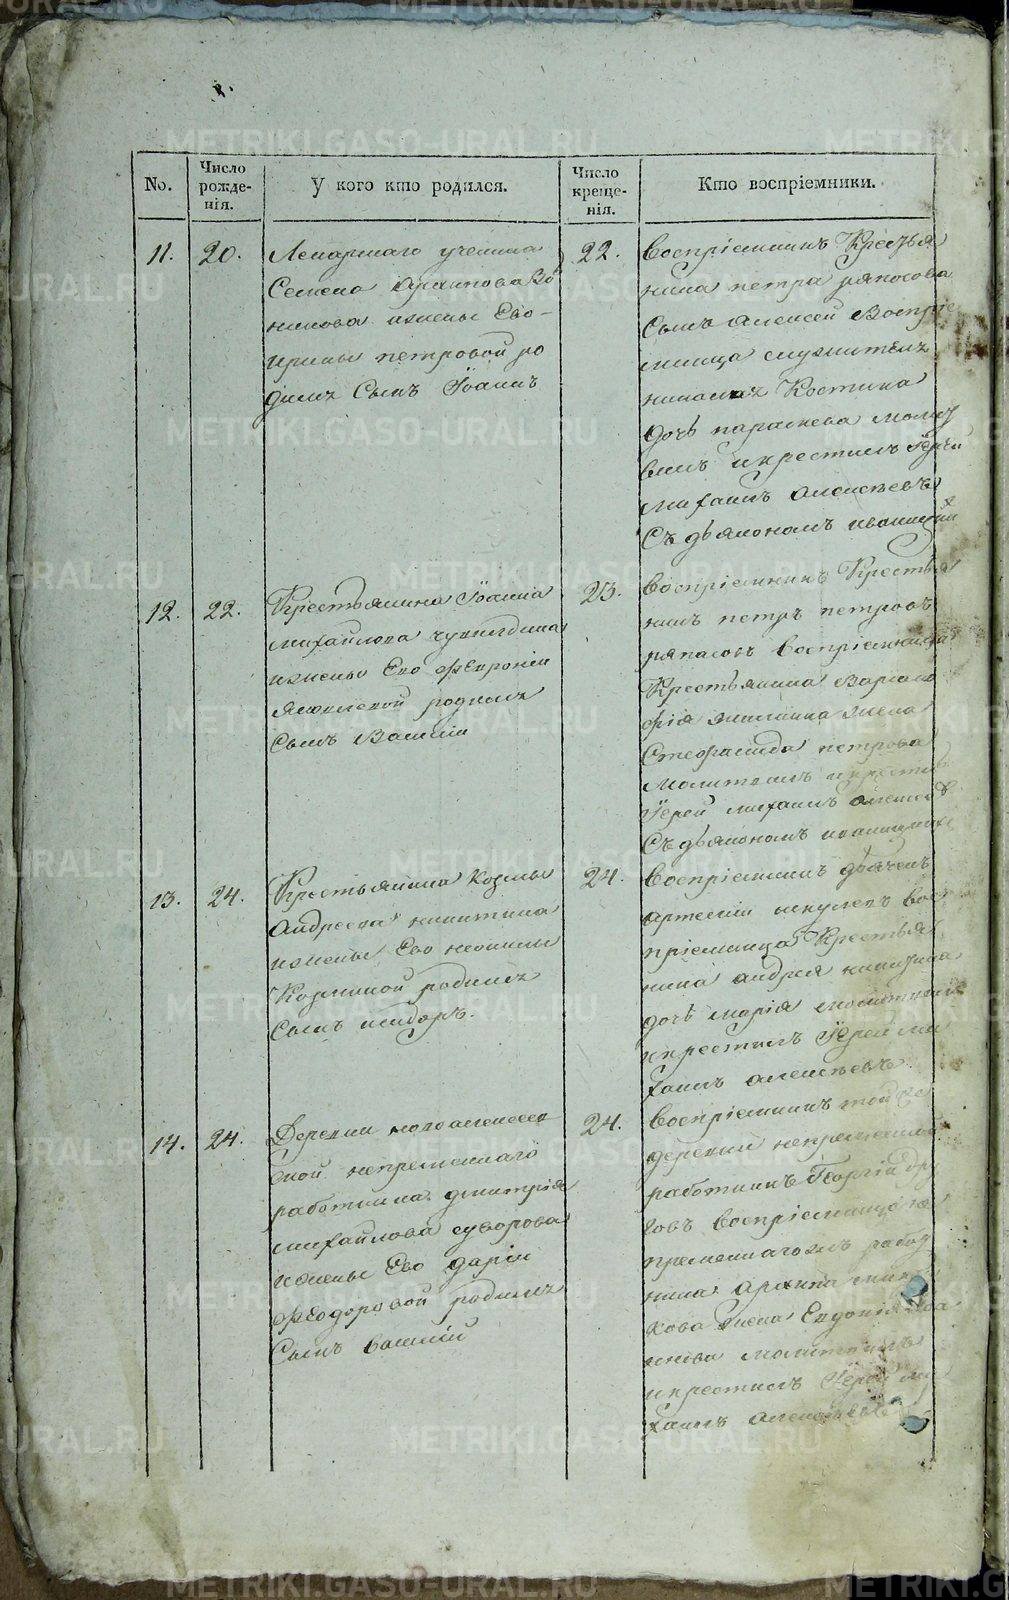 No.
Число рожде-
нія.
У кого кто родился.
Число креще-
нія.
Кто воспріемники.
11. 20.
Лекарнаго ученика
Семена Архипова
никова изжены Ево
ирины петровой ро
дилъ Сынъ Іоаннъ
22.
Воспріемникъ Крестья
нина петра ряпосова
Сынъ Алексей Воспріе
мница служителя
Костина
дочь параскева молит
вилъ икрестилъ Іерей
михаилъ алексѣевъ
Съ дьякономъ
12. 22.
Крестьянина Іоанна
михайлова
изжены Ево Февроніи
Яковлевой родился
Сынъ Василій
23.
Воспріемникъ Крестья
нинъ петръ петровъ
ряпасовъ Воспріемница
Крестьянина Варфоло
жена
Стефанида петрова
молитвилъ икрестилъ
Іерей михаилъ алексѣевъ
Съ дьякономъ
13. 24.
Крестьянина козмы
Андреева никитина
изжены Ево неонилы
родился
Сынъ
24.
Воспріемникъ дьячекъ
вос
пріемница Крестья
нина андрея никитина
дочь марія молитвилъ
икрестилъ Іерей ми
хаилъ алексѣевъ
14. 24.
Деревни новоалексеев
ской непременнаго
работника дмитрія
михайлова суворова
изжены Ево даріи
Феодоровой родился
Сынъ василій
24.
Воспріемникъ той же
деревни непременный
работникъ Георгій
воспріемница не
пременнаго работ
ника Архипа
хова жена Евдокія
молитвилъ
икрестилъ Іерей ми
хаилъ алексѣевъ
METRIKI.GASO-URAL.RU